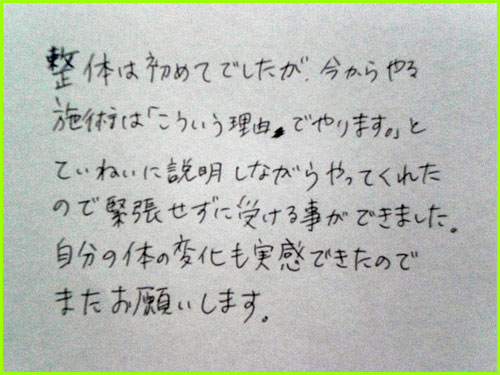 整体は初めてでしたが、今からやる
施術は「こういう理由でやります。」と
ていねいに説明しながらやってくれた
ので緊張せずに受ける事ができました。
自分の体の変化も実感できたので
またお願いします。